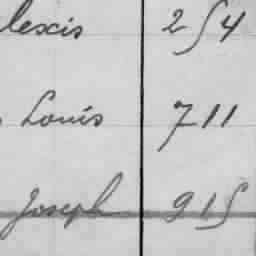 lexis 254
Louis 711
Joseph 915